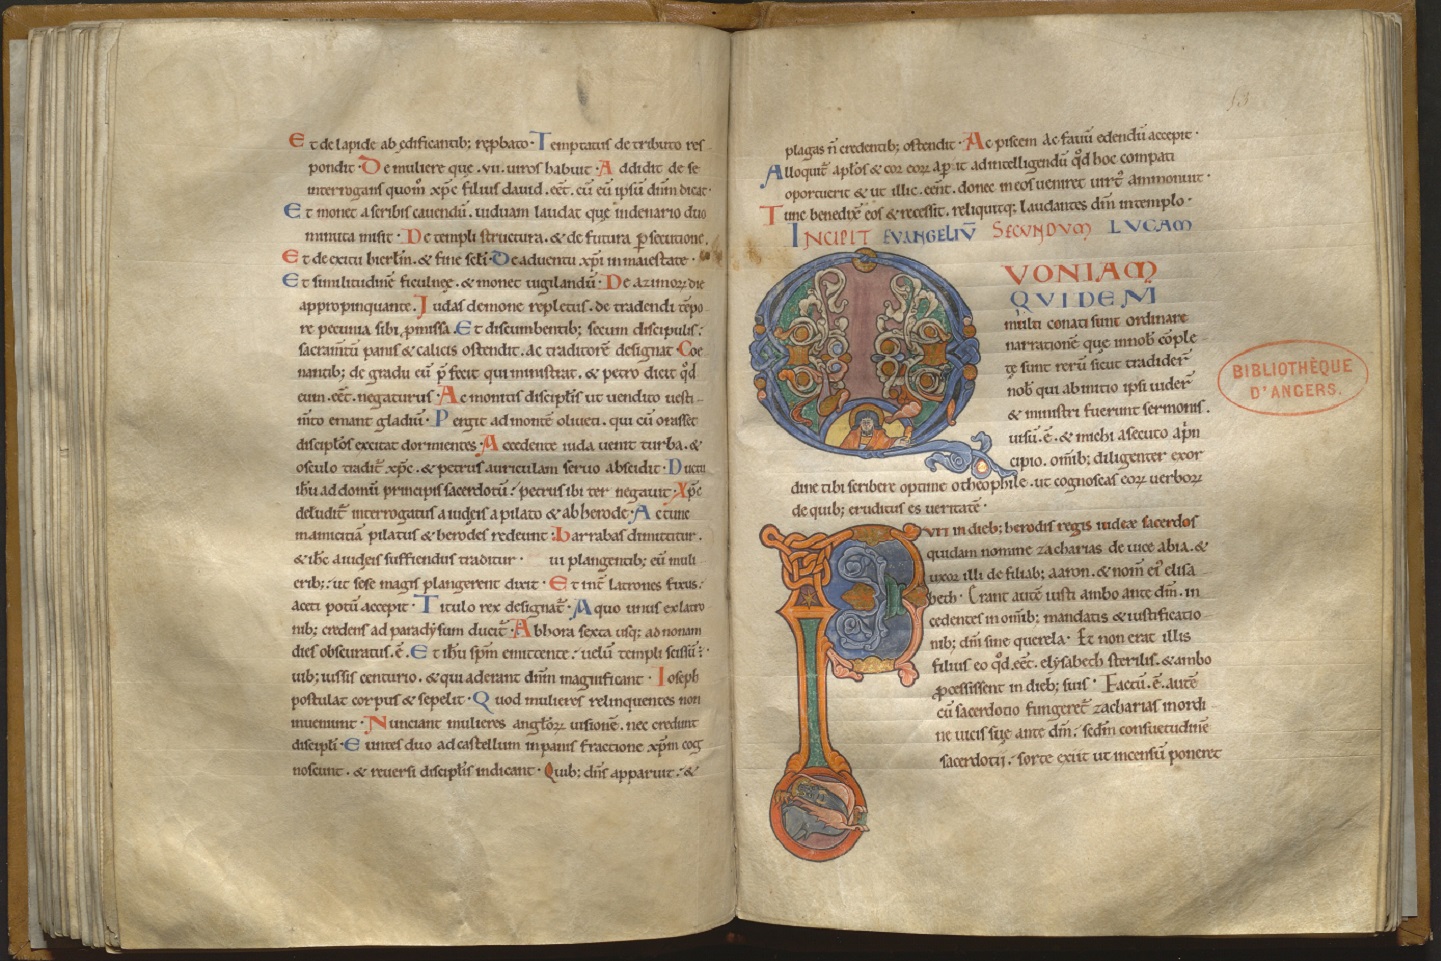 Et de lapide ab ędificantib; rep̱bato · Temptatus de tributo res
pondit · De muliere quę · vii · uiros habuit · Addidit de se
interrogans quom̊ xp̄c filius dauid · ee̅t · cū eū ipsū dn̄m dicat ·
Et monet a scribis cauendū · uiduam laudat quę in denario duo
minuta misit · De templi structura · & de futura p̱secutione ·
Et de exitu hierl̄m · & fine sc̄li · De aduentu xp̄i in maiestate ·
Et similitudinē ficulneę · & monet uigilandū · De azimoꝝ die
appropinquante · Iudas demone repletus · de tradendi tēpo
re pecunia sibi ꝓmissa · Et discumbentib; secum discipulis ·
sacram̄tū panis & calicis ostendit · ac traditorē designat · Coe
nantib; de gradu eū p̄fecit qui ministrat · & petro dicit qđ
eum · ee̅t · negaturus · Ac montis discipl̄is ut uendito uesti
m̄to emant gladiū · Pergit ad montē oliueti · qui cū orasset
discipl̄os excitat dormientes · Accedente iuda uenit turba · &
osculo tradit̄ xp̄c · & petrus auriculam seruo abscidit · Ductū
ih̄u ad domū principis sacerdotū · petrus ibi ter negauit · Xp̄c
deludit̄ interrogatus a iudęis a pilato & ab herode · Ac tunc
in amicitiā pilatus & herodes redeunt · Barrabas dimittitur ·
& ih̄c a iudęis suffiendus traditur · ui plangentib; eū muli
erib; · ut sese magis plangerent dixit · Et int̄ latrones fixus ·
aceti potū accepit · Titulo rex designat̄ · A quo unus ex latro
nib; credens ad paradysum ducit̄ · Ab hora sexta usq; ad nonam
dies obscuratus · ē · Et ih̄u sp̄m emittente · uelū templi scissū ·
uib; iussis centurio · & qui aderant dn̄m magnificant · Ioseph
postulat corpus & sepelit · Quod mulieres relinquentes non
inueniunt · Nunciant mulieres angl̄oꝝ uisionē · nec credunt
discipl̄i · Euntes duo ad castellum in panis fractione xp̄m cog
noscunt · & reuersi discipl̄is indicant · Quib; dn̄s apparuit · &
13
plagas n̄ credentib; ostendit · Ac piscem ac fauū edendū accepit ·
Alloquit̄ apl̄os & cor eoꝝ aperit ad intelligendū qđ hoc compati
oportuerit & ut illic · ee̅nt · donec in eos ueniret uirt̄ ammonuit ·
Tunc benedix̄ eos & recessit · reliquitq; laudantes dn̄m in templo ·
INCIPIT EVANGELIV̄ SECVNDVM LVCAM
QVONIAM
QVIDEM
multi conati sunt ordinare
narrationē quę in nob̄ cōple
tę sunt rerū sicut tradider̄
nob̄ qui ab initio ipsi uider̄
& ministri fuerunt sermonis ·
uisū · ē · & michi assecuto a p̄n
cipio · om̄ib; diligenter exor
dine tibi scribere optime o theophile · ut cognoscas eoꝝ uerboꝝ
de quib; eruditus es ueritatē ·
FVIT in dieb; herodis regis iudeæ sacerdos
quidam nomine zacharias de uice abia · &
uxor illi de filiab; aaron · & nom̄ ei᷒ elisa
beth · Erant autē iusti ambo ante dm̄ · in
cedentes in om̄ib; mandatis & iustificatio
nib; dn̄i sine querela · Et non erat illis
filius eo qđ · ee̅t · elysabeth sterilis · & ambo
ꝓcessissent in dieb; suis · Factū · ē · autē
cū sacerdotio fungeret̄ zacharias in ordi
ne uicis suę ante dm̄ · sc̄dm consuetudinē
sacerdotij · sorte exiit ut incensū poneret
BIBLIOTHÈQUE
D'ANGERS.